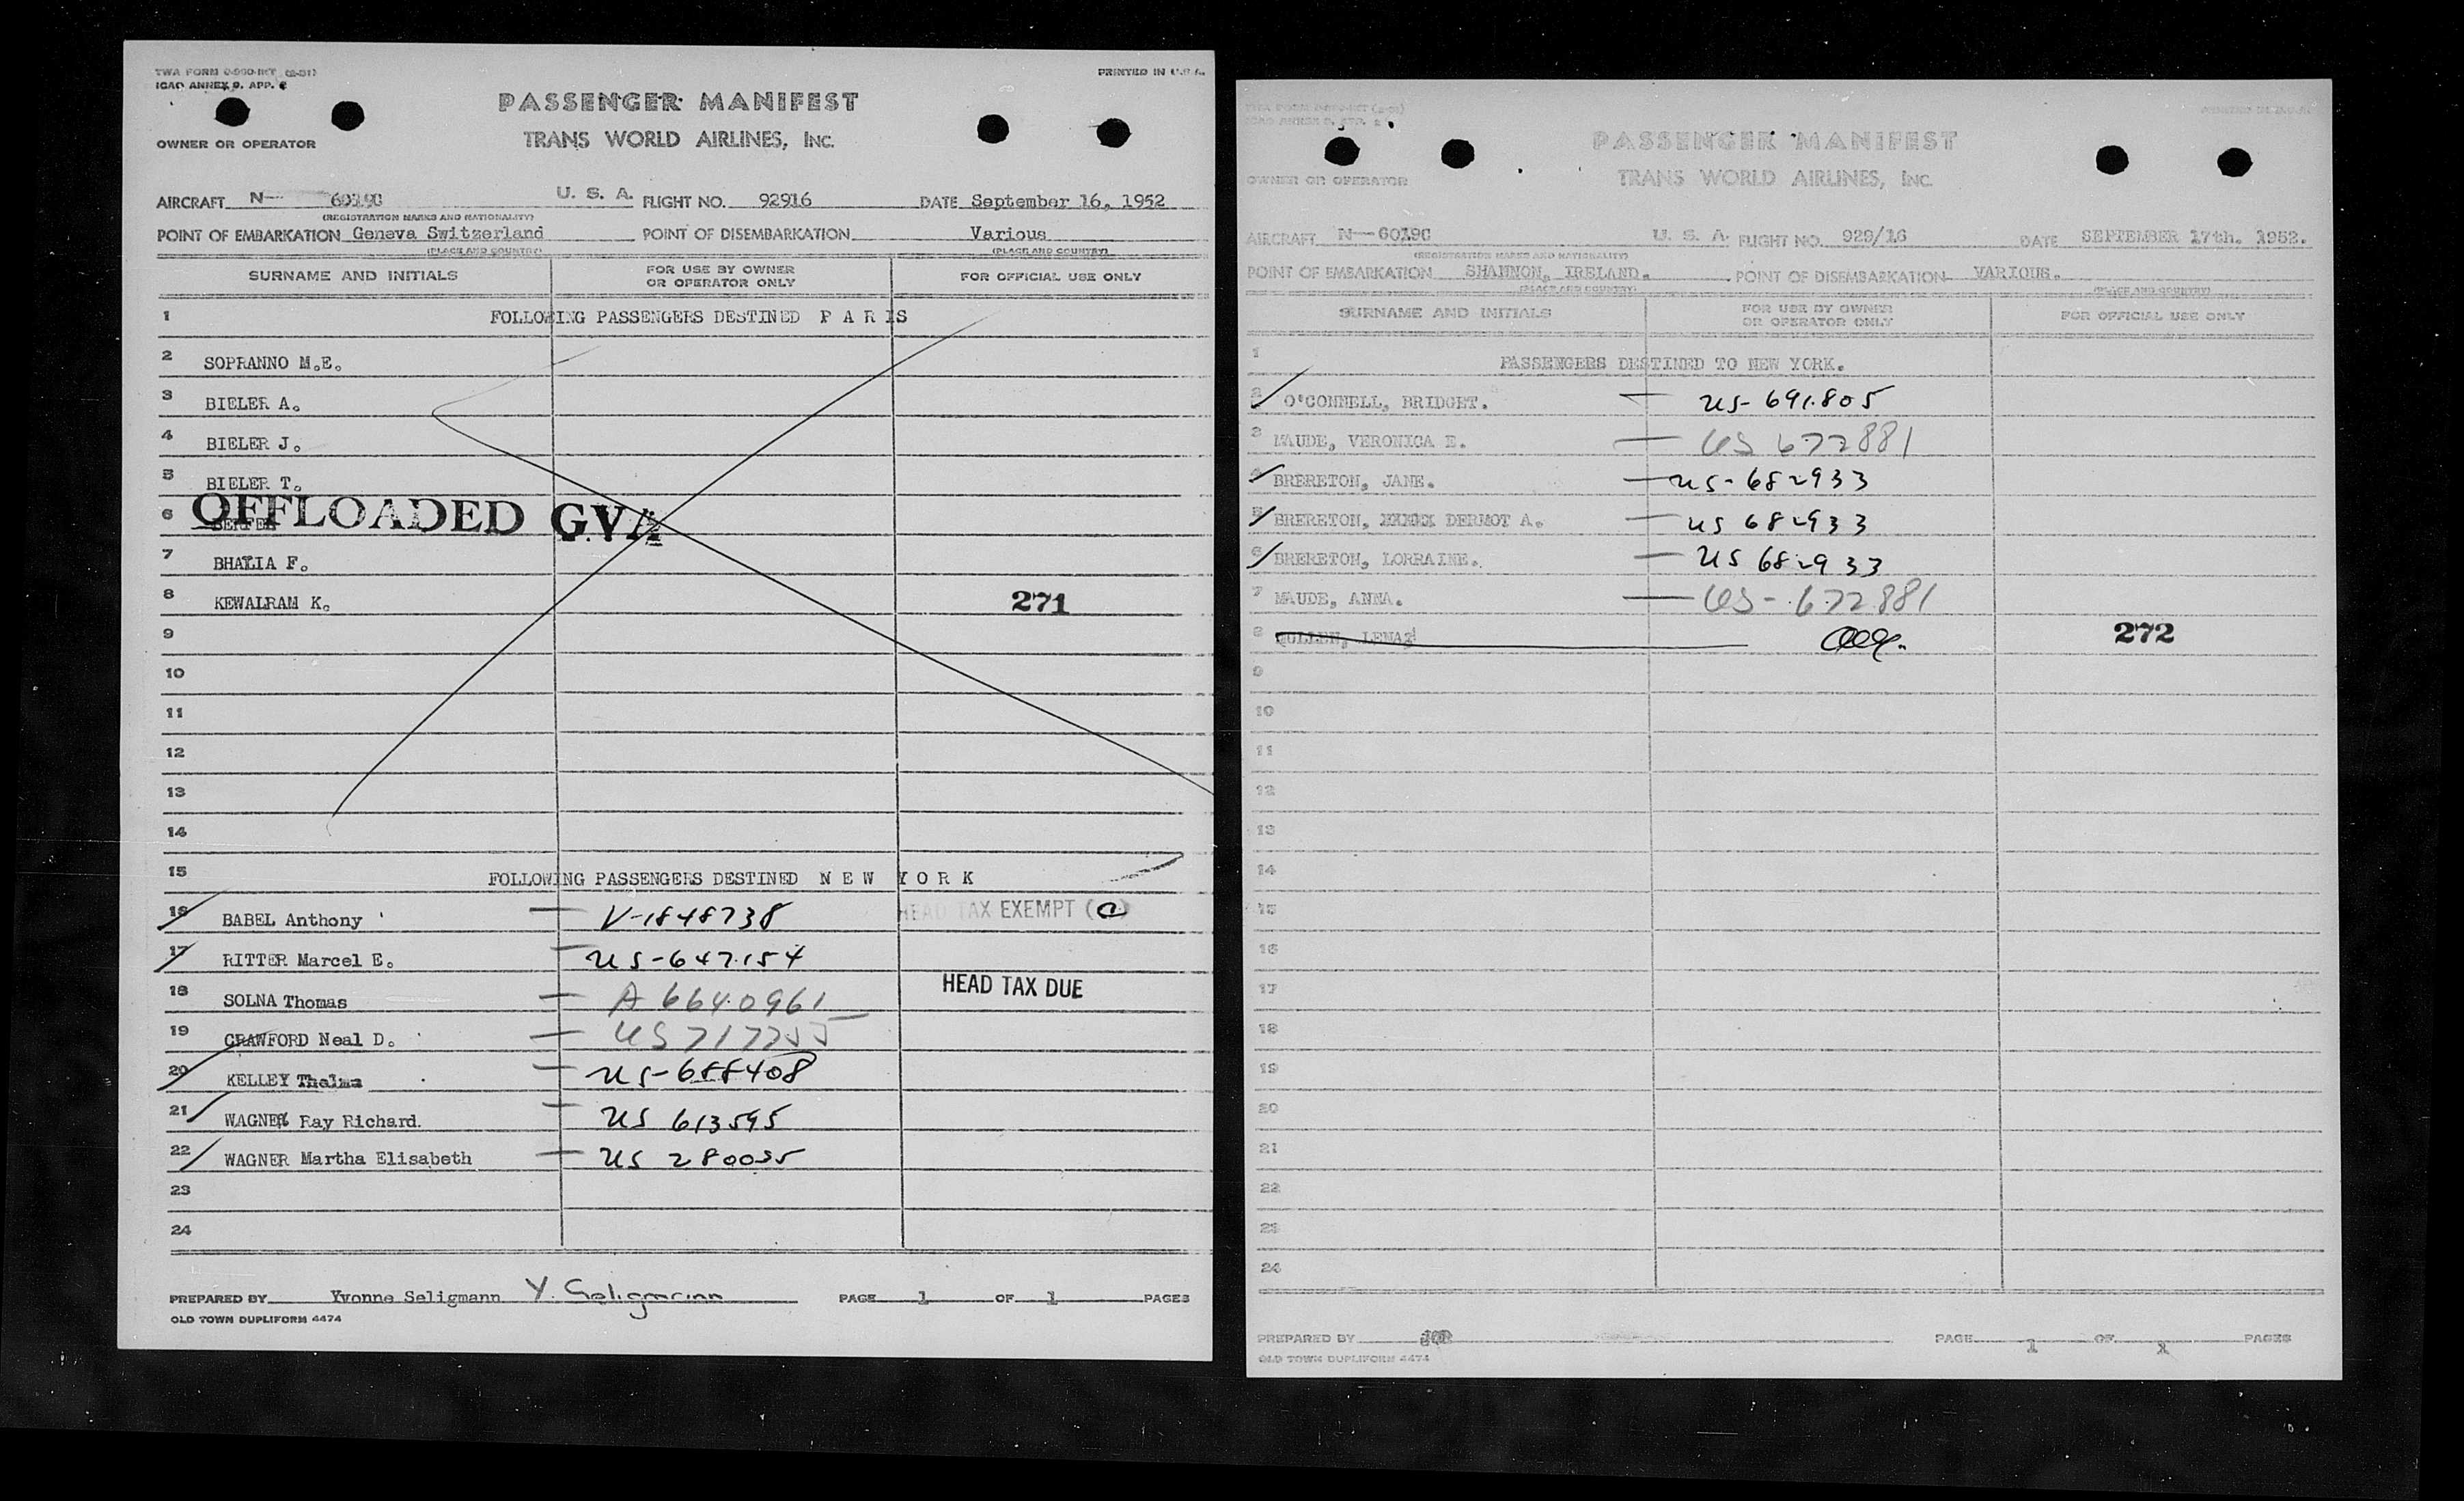 TWA FORM
ICAO ANNEX 9. APP.
PRINTED IN U.S.A.
PASSENGER MANIFEST
TRANS WORLD AIRLINES, INC.
OWNER OR OPERATOR
AIRCRAFT N- 60190 U. S. A. FLIGHT NO. 92916 DATE September 16, 1952
(REGISTRATION MARKS AND NATIONALITY)
POINT OF EMBARKATION Geneva Switzerland POINT OF DISEMBARKATION Various
(PLACE AND COUNTRY) (PLACE AND COUNTRY)
SURNAME AND INITIALS FOR USE BY OWNER OR OPERATOR ONLY FOR OFFICIAL USE ONLY
1 FOLLOWING PASSENGERS DESTINED P A R I S
2 SOPRANNO M.E.
3 BIELER A.
4 BIELER J.
5 BIELER T.
6 OFFLOADED GVA
7 BHATIA F.
8 KEWALRAM K. 271
9
10
11
12
13
14
15 FOLLOWING PASSENGERS DESTINED N E W Y O R K
16 BABEL Anthony V-1848738 HEAD TAX EXEMPT (a)
17 RITTER Marcel E. US-647154
18 SOLNA Thomas A 6640961 HEAD TAX DUE
19 CRAWFORD Neal D. US 717755
20 KELLEY Thelma US-688408
21 WAGNER Ray Richard. US 613595
22 WAGNER Martha Elisabeth US 280055
23
24
PREPARED BY Yvonne Seligmann Y. Seligmann PAGE 1 OF 1 PAGES
OLD TOWN DUPLIFORM 4474
PASSENGER MANIFEST
TRANS WORLD AIRLINES, INC.
OWNER OR OPERATOR
AIRCRAFT N-60190 U. S. A. FLIGHT NO. 929/16 DATE SEPTEMBER 17th. 1952.
(REGISTRATION MARKS AND NATIONALITY)
POINT OF EMBARKATION SHANNON, IRELAND. POINT OF DISEMBARKATION VARIOUS.
(PLACE AND COUNTRY) (PLACE AND COUNTRY)
SURNAME AND INITIALS FOR USE BY OWNER OR OPERATOR ONLY FOR OFFICIAL USE ONLY
1 PASSENGERS DESTINED TO NEW YORK.
2 O'CONNELL, BRIDGET. US-691805
3 MAUDE, VERONICA E. US 672881
4 BRERETON, JANE. US-682933
5 BRERETON, XXXXX DERMOT A. US 682933
6 BRERETON, LORRAINE. US 682933
7 MAUDE, ANNA. US-672881
8 LENA 272
9
10
11
12
13
14
15
16
17
18
19
20
21
22
23
24
PREPARED BY PAGE 1 OF 1 PAGES
OLD TOWN DUPLIFORM 4474